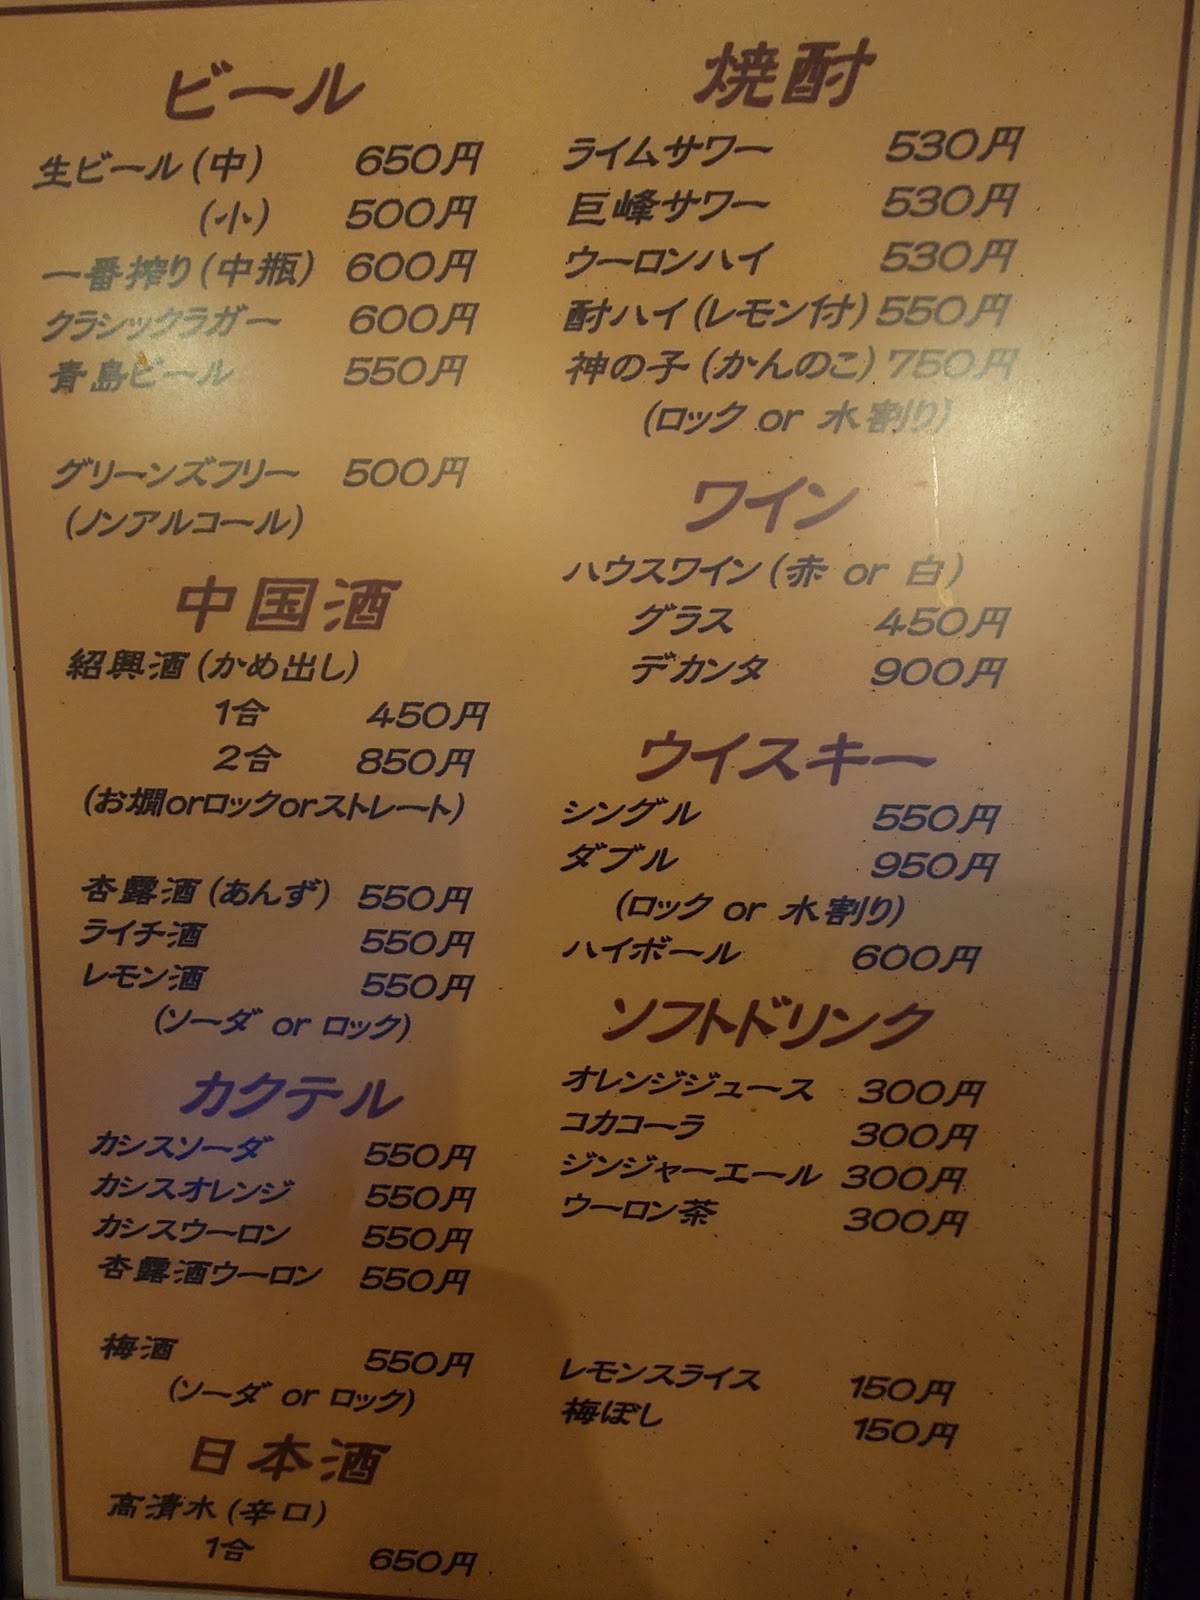 ビール
生ビール(中) 650円
(小) 500円
一番搾り(中瓶) 600円
クラシックラガー 600円
青島ビール 550円
グリーンズフリー 500円
(ノンアルコール)
中国酒
紹興酒(かめ出し)
1合 450円
2合 850円
(お燗orロックorストレート)
杏露酒(あんず) 550円
ライチ酒 550円
レモン酒 550円
(ソーダ or ロック)
カクテル
カシスソーダ 550円
カシスオレンジ 550円
カシスウーロン 550円
杏露酒ウーロン 550円
梅酒 550円
(ソーダ or ロック)
日本酒
高清水(辛口)
1合 650円
焼酎
ライムサワー 530円
巨峰サワー 530円
ウーロンハイ 530円
酎ハイ(レモン付) 550円
神の子(かんのこ) 750円
(ロック or 水割り)
ワイン
ハウスワイン(赤 or 白)
グラス 450円
デカンタ 900円
ウイスキー
シングル 550円
ダブル 950円
(ロック or 水割り)
ハイボール 600円
ソフトドリンク
オレンジジュース 300円
コカコーラ 300円
ジンジャーエール 300円
ウーロン茶 300円
レモンスライス 150円
梅ぼし 150円